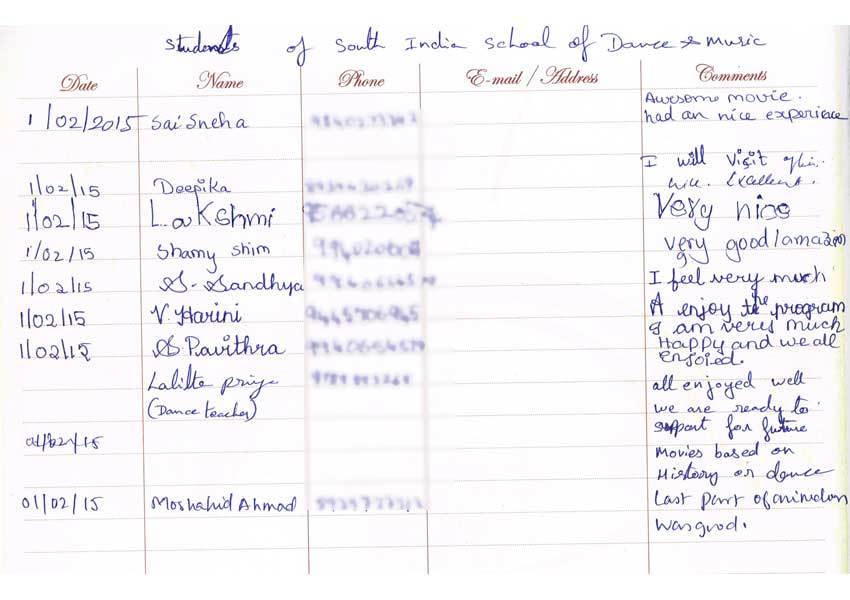 Students of South India School of Dance & Music
Date Name Phone E-mail / Address Comments
Awesome movie.
1/02/2015 Sai Sneha had an nice experience
I will visit
1/02/15 Deepika Excellent.
1/02/15 Lakshmi Very nice
1/02/15 Shamy Shim very good/amazing
1/02/15 S. Sandhya I feel very much
1/02/15 V. Harini enjoy the program
I am very much
1/02/15 S. Pavithra Happy and we all
enjoied.
Lalitte priya all enjoyed well
(Dance teacher) we are ready to
support for future
01/02/15 Movies based on
History or dance
01/02/15 Moshahid Ahmad last part of animation
was good.